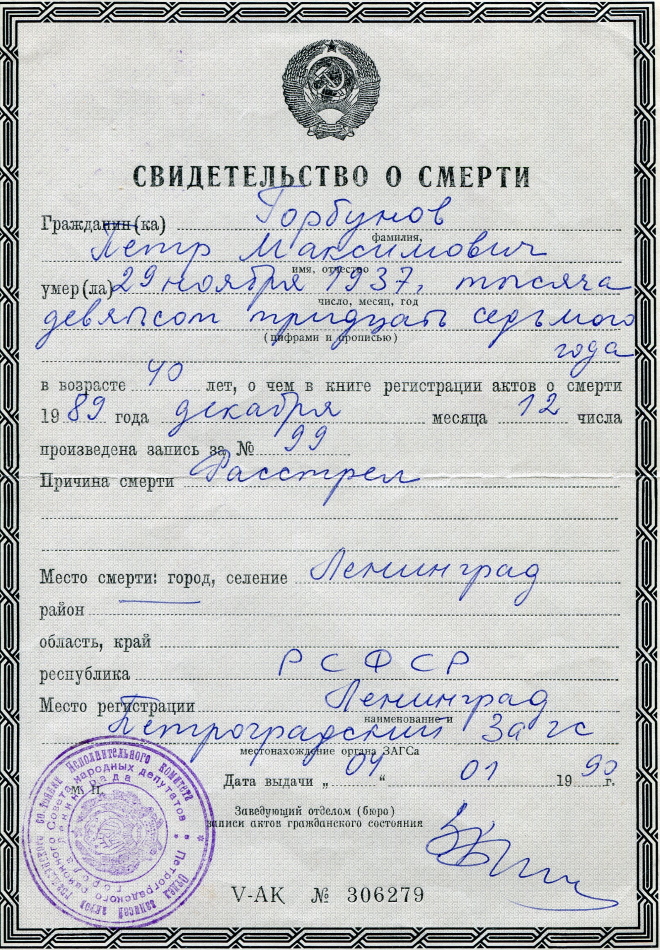 СВИДЕТЕЛЬСТВО О СМЕРТИ
Гражданин(ка) Горбунов
фамилия,
Петр Максимович
имя, отчество
умер(ла) 29 ноября 1937, тысяча
число, месяц, год
девятьсот тридцать седьмого
(цифрами и прописью)
года
в возрасте 40 лет, о чем в книге регистрации актов о смерти
1989 года декабря месяца 12 числа
произведена запись за № 99
Причина смерти Расстрел
Место смерти: город, селение Ленинград
район
область, край
республика РСФСР
Место регистрации Ленинград
наименование и
Петроградский Загс
местонахождение органа ЗАГСа
Дата выдачи „04“ 01 1990 г.
М. П.
Заведующий отделом (бюро)
записи актов гражданского состояния
V-АК № 306279
Исполнительного Комитета
Петроградского районного Совета народных депутатов
города Ленинграда